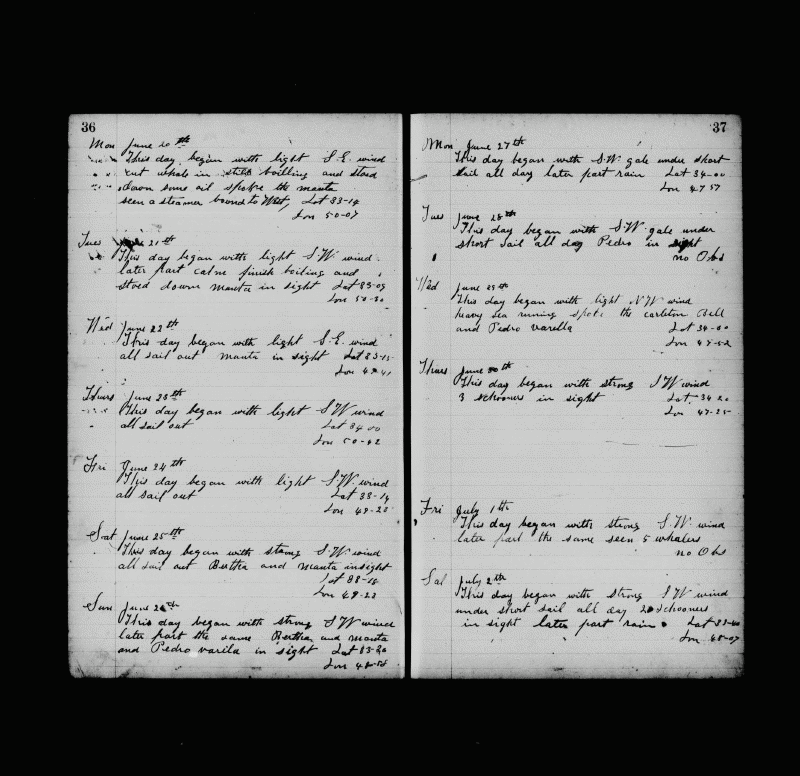 36
Mon June 20th
This day began with light S.E. wind
cut whale in still boilling and stoed
down some oil spoke the manta
seen a steamer bound to West, Lat 33-14
Lon 50-07
Tues June 21th
This day began with light S.W. wind
later part calm finish boiling and
stoed down manta in sight Lat 33-09
Lon 50-30
Wed June 22th
This day began with light S.E. wind
all sail out manta in sight Lat 33-15
Lon 49-41
Thurs June 23th
This day began with light S.W wind
all sail out Lat 34 00
Lon 50-42
Fri June 24th
This day began with light S.W. wind
all sail out Lat 33-14
Lon 49-28
Sat June 25th
This day began with strong S.W wind
all sail out Bertha and manta insight
Lat 33-18
Lon 49-22
Sun June 26th
This day began with strong S.W wind
later part the same Bertha and manta
and Pedro varila in sight Lat 33-20
Lon 48-58
37
Mon June 27th
This day began with S.W gale under short
sail all day later part rain Lat 34-00
Lon 47 57
Tues June 28th
This day began with S.W gale under
short sail all day Pedro in sight
no Obs
Wed June 29th
This day began with light N.W wind
heavy sea running spoke the carleton Bell
and Pedro varella Lat 34-00
Lon 47-52
Thurs June 30th
This day began with strong S W wind
3 schooners in sight Lat. 34 20
Lon 47-25
Fri July 1th
This day began with strong S.W. wind
later part the same seen 5 whalers
no Obs
Sat July 2th
This day began with strong S W wind
under short sail all day 2 schooners
in sight later part rain Lat 33-40
Lon 48-07